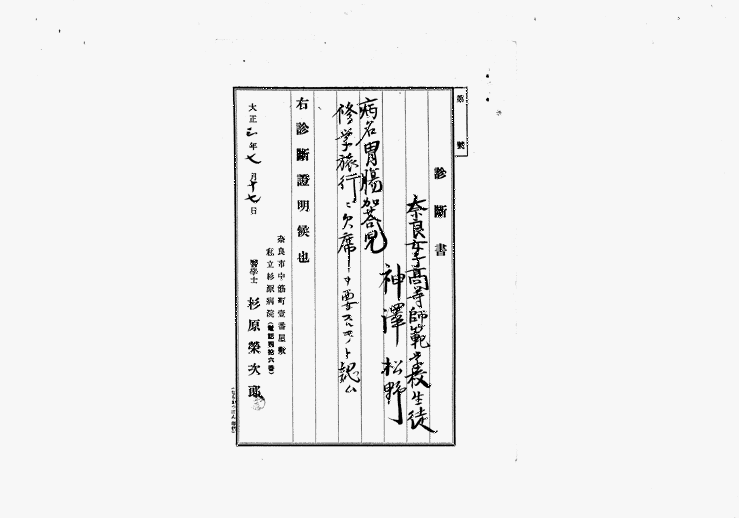 第 號
診斷書
奈良女子高等師範学校生徒
神澤 松野
病名 胃腸加答児
修学旅行ニ欠席
要スルモノト認ム
右診斷證明候也
大正三年七月十七日
奈良市中筋町壹番屋敷
私立杉原病院
醫學士 杉原榮次郎